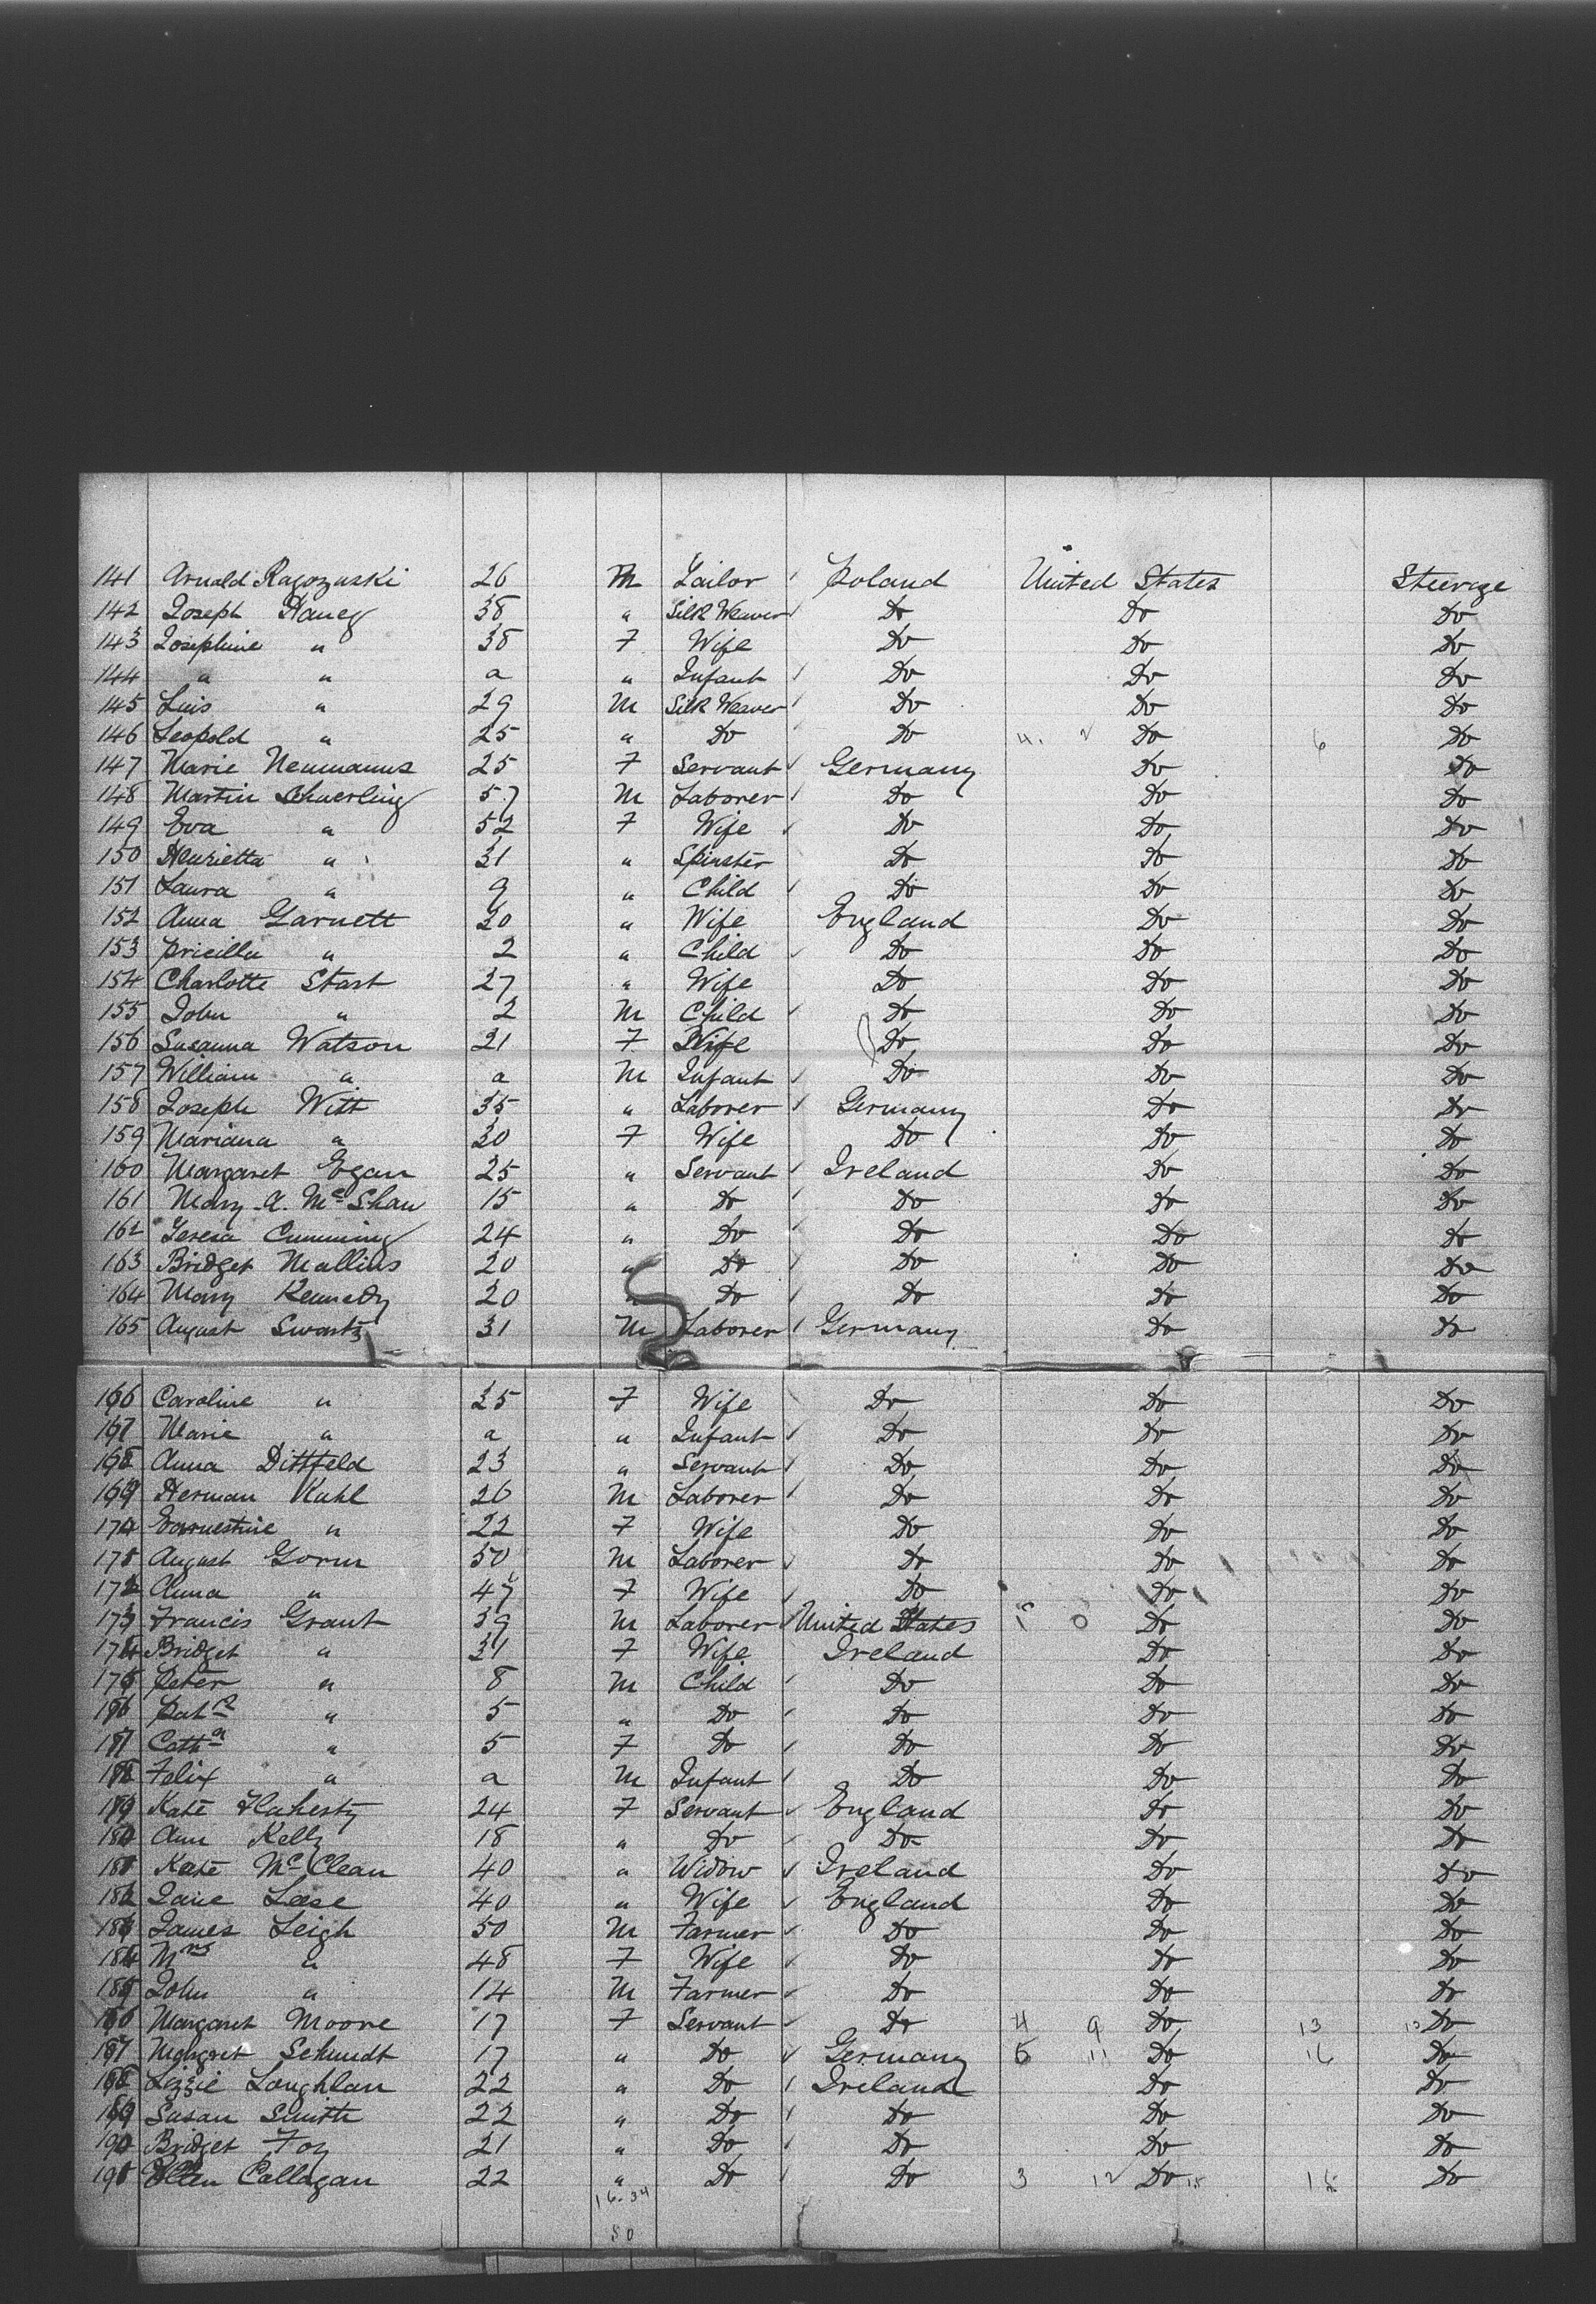 141 Arnald Ragozuski 26 M Tailor Poland United States Steerage
142 Joseph Haneg 38 " Silk Weaver Do Do Do
143 Josephine " 38 F Wife Do Do Do
144 " " a " Infant Do Do Do
145 Luis " 29 M Silk Weaver Do Do Do
146 Leopold " 25 " Do Do 4. 2 Do 6 Do
147 Marie Neumanns 25 F Servant Germany Do Do
148 Martin Schuerling 57 M Laborer Do Do Do
149 Eva " 52 F Wife Do Do Do
150 Henrietta " 31 " Spinster Do Do Do
151 Laura " 9 " Child Do Do Do
152 Anna Garnett 20 " Wife England Do Do
153 Pricilla " 2 " Child Do Do Do
154 Charlotte Start 27 " Wife Do Do Do
155 John " 2 M Child Do Do Do
156 Susanna Watson 21 F Wife Do Do Do
157 William " a M Infant Do Do Do
158 Joseph Witt 35 " Laborer Germany Do Do
159 Mariana " 30 F Wife Do Do Do
160 Margaret Egan 25 " Servant Ireland Do Do
161 Mary A. McShan 15 " Do Do Do Do
162 Teresa Cumming 24 " Do Do Do Do
163 Bridget Mallins 20 " Do Do Do Do
164 Mary Kennedy 20 " Do Do Do Do
165 August Swartz 31 M Laborer Germany Do Do
166 Caroline " 25 F Wife Do Do Do
167 Marie " a " Infant Do Do Do
168 Anna Dittfeld 23 " Servant Do Do Do
169 Herman Kuhl 26 M Laborer Do Do Do
170 Earnestine " 22 F Wife Do Do Do
171 August Gorm 50 M Laborer Do Do Do
172 Anna " 47 F Wife Do Do Do
173 Francis Grant 39 M Laborer United States 1 0 Do Do
174 Bridget " 31 F Wife Ireland Do Do
175 Peter " 8 M Child Do Do Do
176 Patk " 5 " Do Do Do Do
177 Catha " 5 F Do Do Do Do
178 Felix " a M Infant Do Do Do
179 Kate Flaherty 24 F Servant England Do Do
180 Ann Kelly 18 " Do Do Do Do
181 Kate McClean 40 " Widow Ireland Do Do
182 Jane Leese 40 " Wife England Do Do
183 James Leigh 50 M Farmer Do Do Do
184 Mrs " 48 F Wife Do Do Do
185 John " 14 M Farmer Do Do Do
186 Margaret Moore 17 F Servant Do 4 9 Do 13 13 Do
187 Margret Schmidt 17 " Do Germany 5 11 Do 16 Do
188 Lizzie Loughlan 22 " Do Ireland Do Do
189 Susan Smith 22 " Do Do Do Do
190 Bridget Foy 21 " Do Do Do Do
191 Ellen Callagan 22 " Do Do 3 12 Do 15 Do
16.34
50